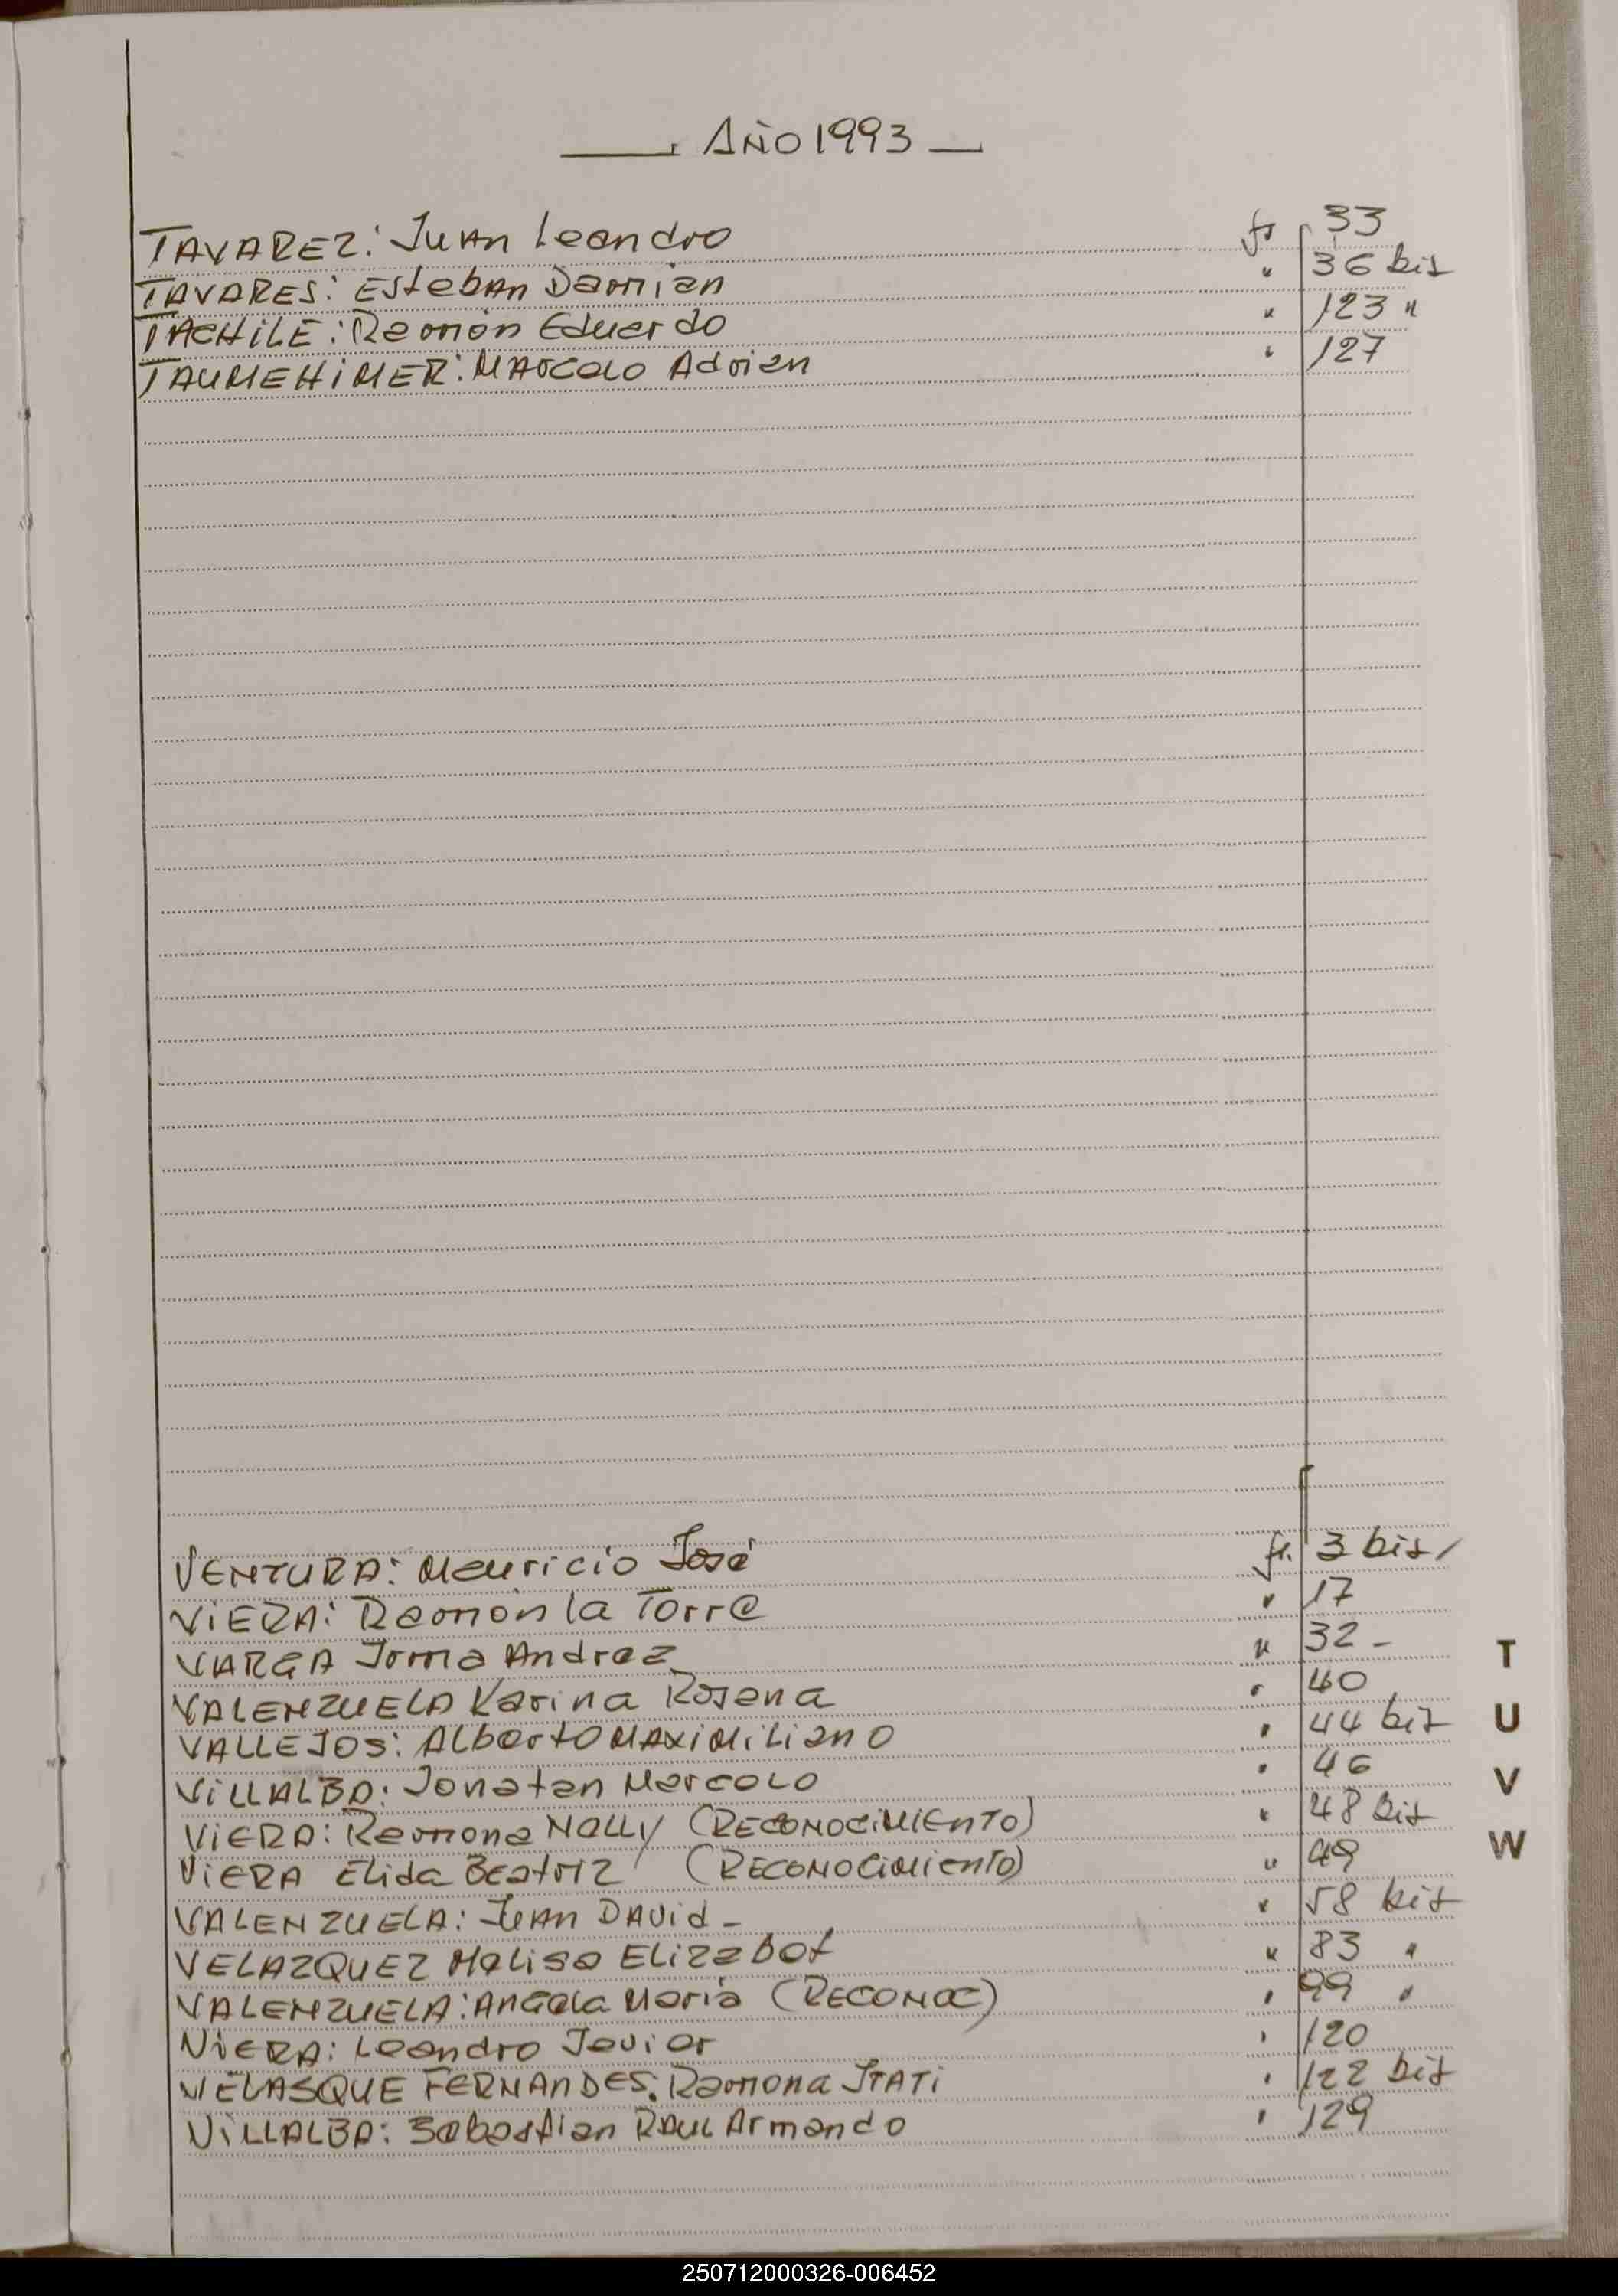 AÑO 1993
TAVAREZ: Juan Leandro fs 33
TAVARES: Esteban Damian " 36 bis
TACHILE: Ramón Eduardo " 123 "
TAUMEHIMER: Marcelo Adrian " 127
VENTURA: Mauricio José fs. 3 bis
VIERA: Ramón la Torre " 17
VARGA Irma Andrea " 32 -
VALENZUELA Karina Rosana " 40
VALLEJOS: Alberto Maximiliano " 44 bis
VILLALBA: Jonatan Marcelo " 46
VIERA: Ramona Nelly (RECONOCIMIENTO) " 48 bis
VIERA Elida Beatriz (RECONOCIMIENTO) " 49
VALENZUELA: Juan David - " 58 bis
VELAZQUEZ Melisa Elizabet " 83 "
VALENZUELA: Angela María (RECONOC) " 99 "
VIERA: Leandro Javier " 120
VELASQUE FERNANDES: Ramona ITATI " 122 bis
VILLALBA: Sebastian Raul Armando " 129
T
U
V
W
250712000326-006452